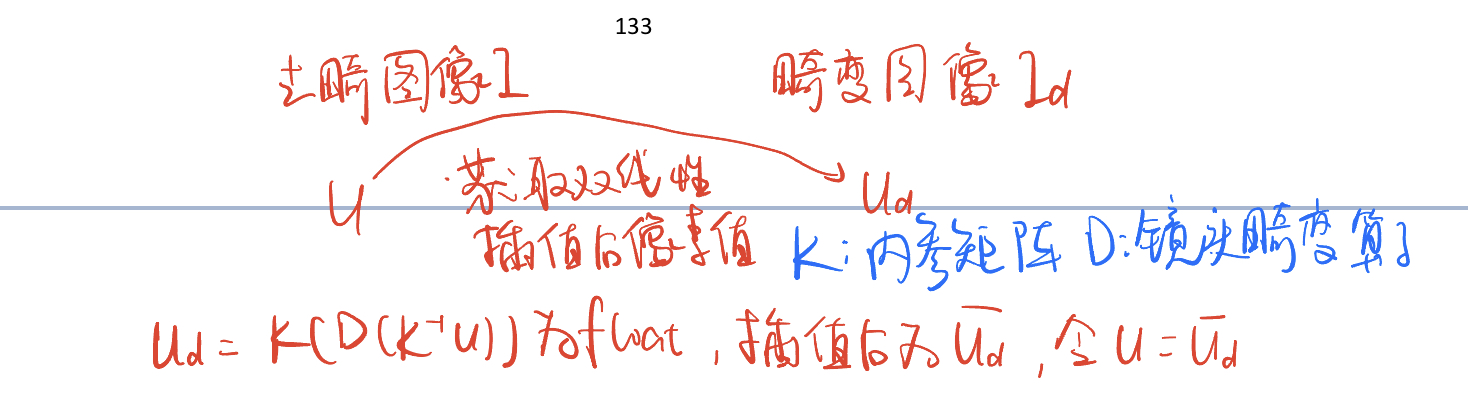 133
去畸图像I 畸变图像Id
u 获取双线性 ud
插值后像素值 K:内参矩阵 D:镜头畸变算子
ud = K(D(K⁻¹u))为float,插值后为u̅d,令u = u̅d